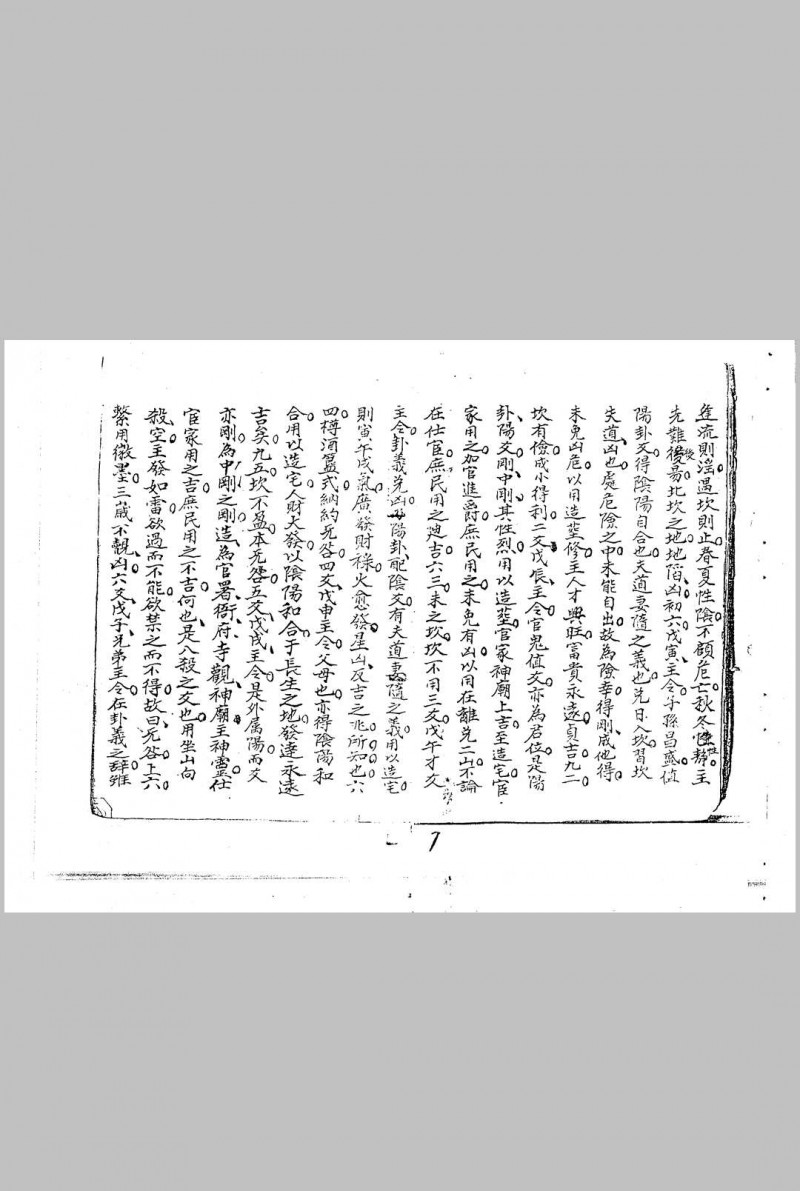 逢流則滔。遇坎則止。春夏性陰。不顧危亡。秋冬性靜。主
先難後易。北坎之地。地陷。凶。初六戊寅。主令子孫昌盛。值
陽卦爻。得陰陽自合也。夫道妻隨之義也。兑日入坎。習坎
失道。凶也。處危險之中。未能自出。故為險。幸得剛成。他得
未免凶危。以用造塟修。主人才興旺。富貴永遠。貞吉。九二
坎有檢。成小得利。二爻戊辰。主令官鬼值爻。亦為君位。是陽
卦陽爻。剛中剛。其性烈。用以造塟。官家神廟上吉。至造宅官
家用之。加官進爵。庶民用之。未免有凶。以用在離兑二山。不論
在仕官庶民用之。廸吉。六三。未之坎坎。不用。三爻戊午才爻
主令。卦義兑凶。毋陽卦。配陰爻。有夫道妻隨之義。用以造宅
則寅午戌氣廣。發財祿。火愈發。星凶。反吉之兆。所知也。六
四樽酒簋弍。納約无咎。四爻戊申。主令父母也。亦得陰陽和
合。用以造宅。人財大發。以陰陽和合。于長生之地。發達永遠
吉矣。九五。坎不盈。本无咎。五爻戊戌。主令是外属陽而爻
亦剛。為中剛之剛。造為官署衙府寺觀神廟。主神靈。仕
官家用之吉。庶民用之不吉。何也。是八殺之爻也。用坐山向
殺空。主發如雷。欲遏而不能。欲禁之而不得。故曰无咎。上六
繫用徽墨。三歲不覿。凶。六爻戊子。兄弟主令。在卦義之辞雖
7